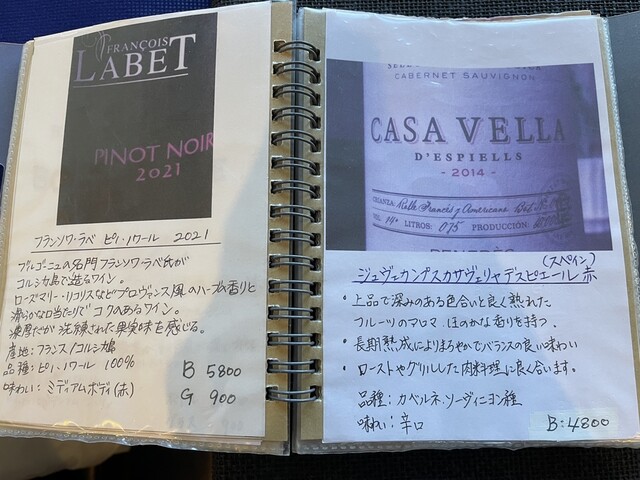 FRANÇOIS
LABET
PINOT NOIR
2021
フランソワ・ラベ ピノ・ノワール 2021
ブルゴーニュの名門フランソワ・ラベ氏が
コルシカ島で造るワイン。
ローズマリー・リコリスなどプロヴァンス風のハーブの香りと
滑らかな口当たりでコクのあるワイン。
濃厚だが洗練された果実味を感じる。
産地:フランス/コルシカ島
品種:ピノ・ノワール 100%
味わい:ミディアムボディ(赤)
B 5800
G 900
CABERNET SAUVIGNON
CASA VELLA
D'ESPIELLS
- 2014 -
CRIANZA: Roble Francés y Americano
VOL. 14% LITROS: 0,75 PRODUCCIÓN:
PENEDÈS
(スペイン)
ジュヴェカンプスカサヴェリャデスピエール 赤
・上品で深みのある色合いと良く熟れた
フルーツのアロマ、ほのかな香りを持つ。
・長期熟成によりまろやかでバランスの良い味わい
・ローストやグリルした肉料理に良く合います。
品種:カベルネ・ソーヴィニヨン種
味わい:辛口
B:4800